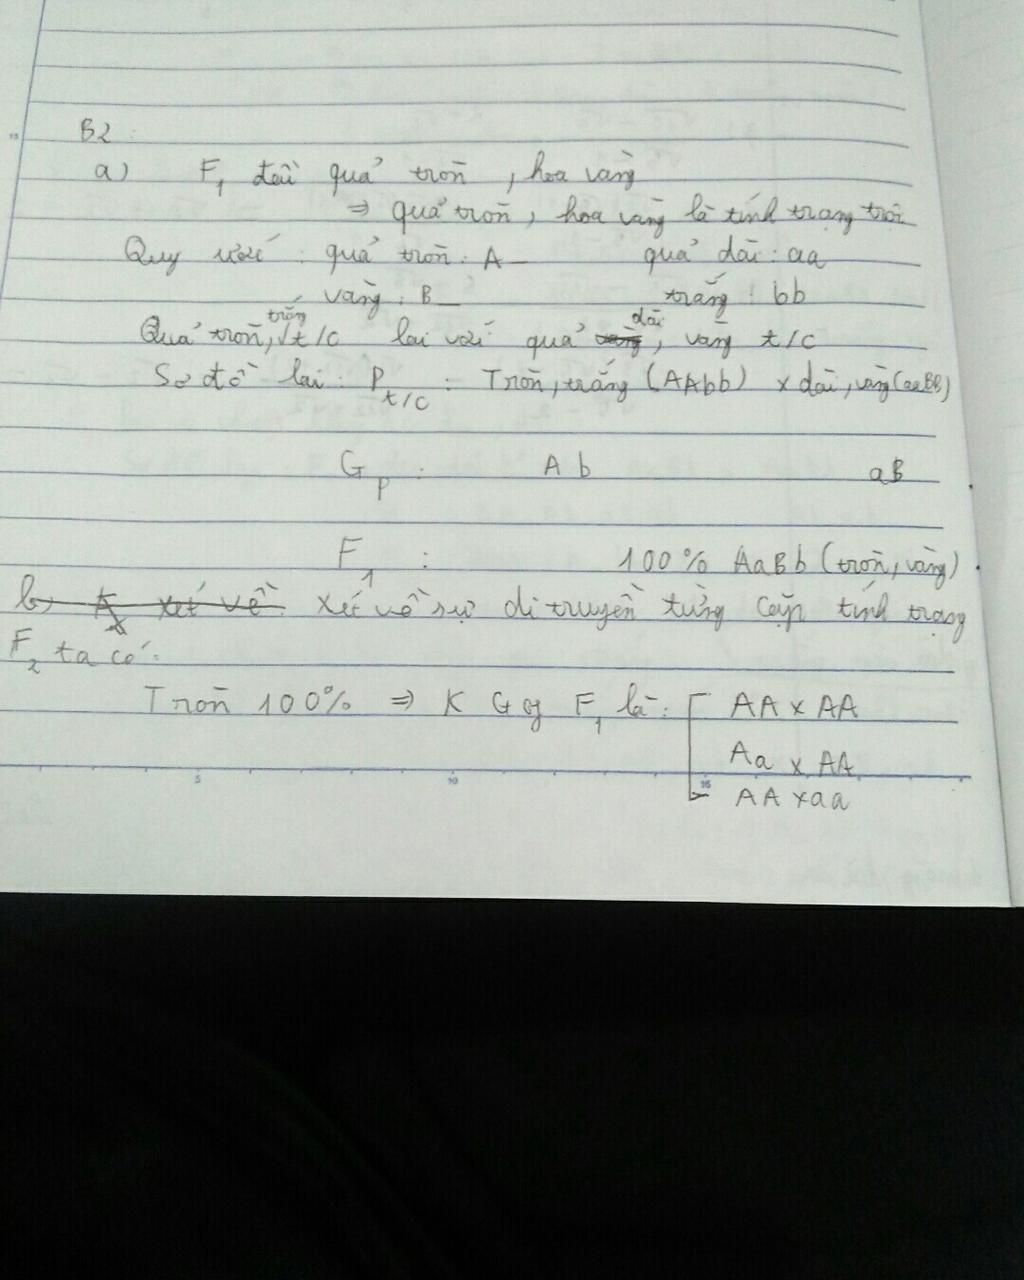 B2:
a) F1 đều quả tròn, hoa vàng
⇒ quả tròn, hoa vàng là tính trạng trội
Quy ước: quả tròn: A_ quả dài: aa
vàng: B_ trắng: bb
trắng dài
Quả tròn, √ t/c lai với quả vàng, vàng t/c
Sơ đồ lai: P t/c: Tròn, trắng (AAbb) x dài, vàng (aaBB)
Gp: Ab aB
F1: 100% AaBb (tròn, vàng)
b) xét về xét về sự di truyền từng cặp tính trạng
F2 ta có:
Tròn 100% ⇒ KG F1 là: [ AA x AA
Aa x AA
5 10 15
AA x aa